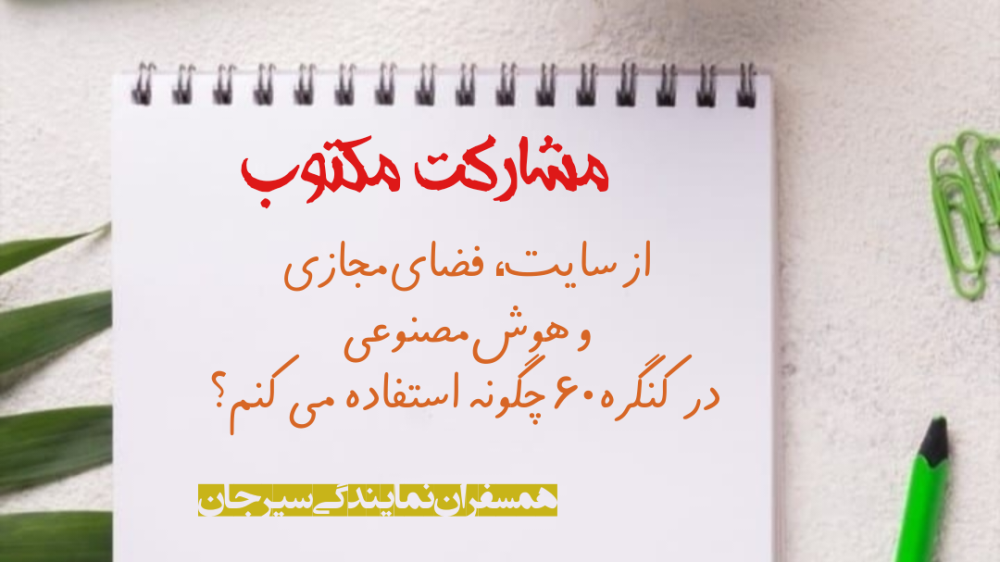 مشارکت مکتوب
از سایت، فضای مجازی
و هوش مصنوعی
در کنگره ۶۰ چگونه استفاده می کنم؟
همسفران نمایندگی سیرجان